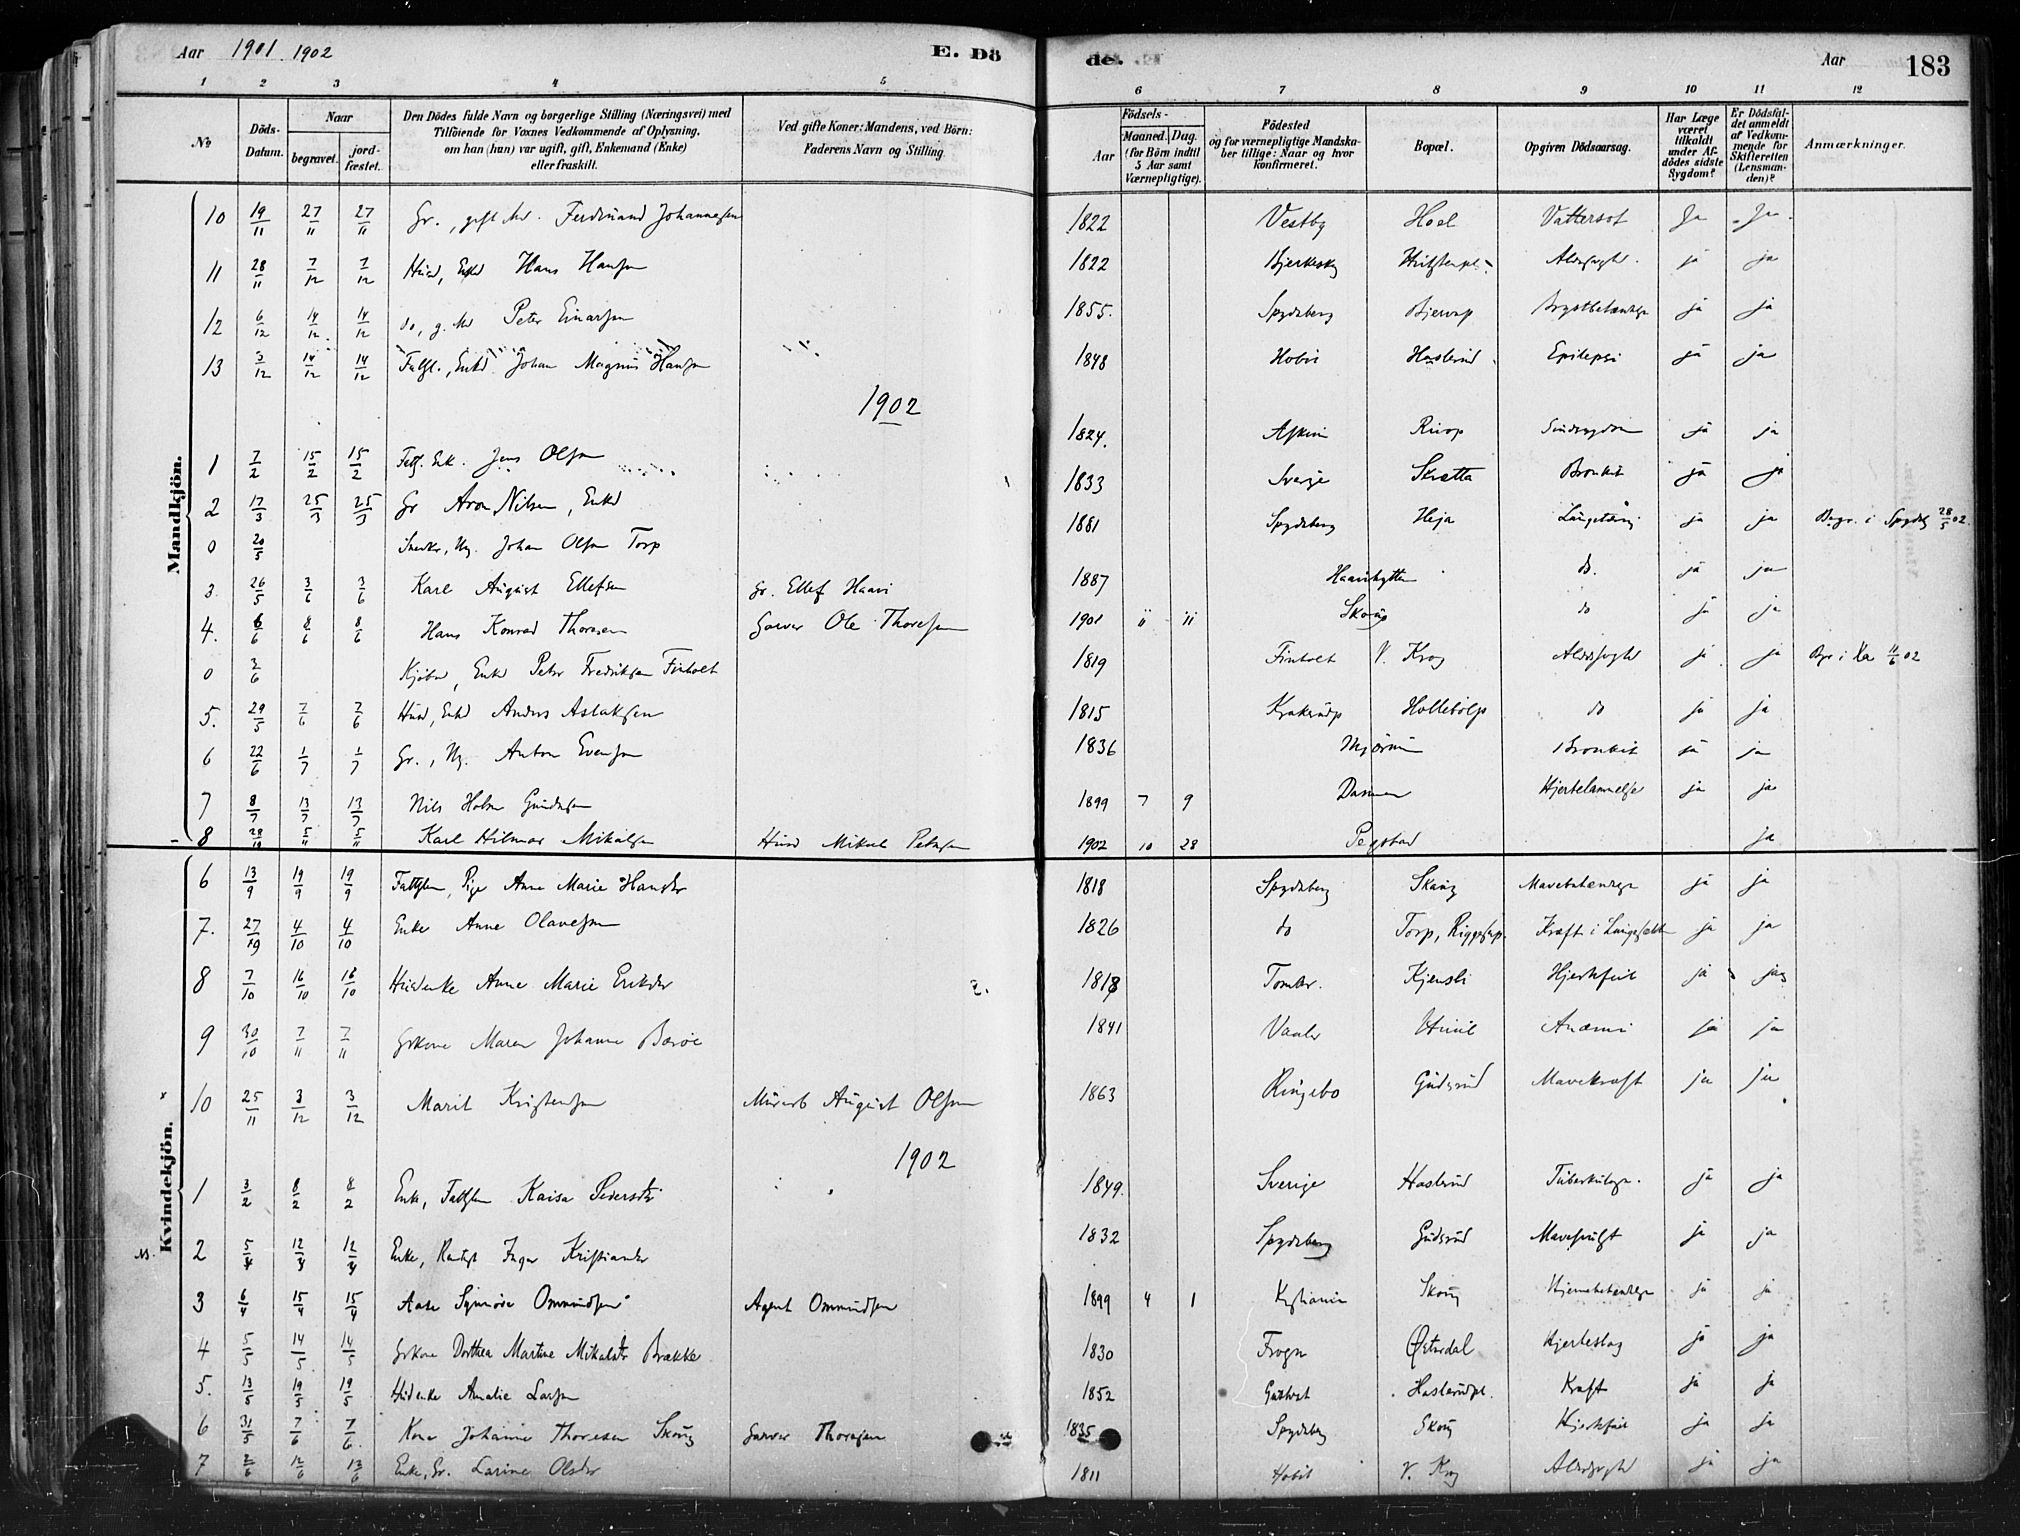 Aar 1901. 1902 E. Döde. Aar 183
1 2 3 4 5 6 7 8 9 10 11 12
No Döds-Datum. Naar begravet. jordfæstet. Den Dödes fulde Navn og borgerlige Stilling (Næringsvei) med Tilföiende for Voxnes Vedkommende af Oplysning, om han (hun) var ugift, gift, Enkemand (Enke) eller fraskilt. Ved gifte Koner: Mandens, ved Börn: Faderens Navn og Stilling. Födsels- Aar Maaned. Dag. (for Börn indtil 5 Aar samt Værnepligtige). Födested og for værnepligtige Mandskaber tillige: Naar og hvor konfirmeret. Bopæl. Opgiven Dödsaarsag. Har Læge været tilkaldt under Afdödes sidste Sygdom? Er Dödsfaldet anmeldt af Vedkommende for Skifteretten (Lensmanden)? Anmærkninger.
Mandkjön.
10 19/11 27/11 27/11 Gr., gift Md. Ferdinand Johannesen 1822 Vestby Hoel Vattersot Ja Ja
11 28/11 7/12 7/12 Husd, Enkd Hans Hansen 1822 ja ja
12 6/12 14/12 14/12 do, g. Md Peter Einarsen 1855. Spydeberg Bjerup Brystbetændelse ja ja
13 3/12 14/12 14/12 Fattl., Enkd Johan Magnus Hansen 1848 Hobøl Haslerud Epilepsi ja ja
1902
1 7/2 15/2 15/2 Fattl. Enk. Jens Olsen 1824. Askim ja ja
2 17/3 25/3 25/3 Gr Aron Nilsen, Enkd 1833 Sverige Skratta Bronkit ja ja
0 20/5 Snedker, Ug. Johan Olsen Torp 1881 Spydeberg Heja ja ja Begr. i Spydeb 28/5 02.
3. 26/5 3/6 3/6 Karl August Ellefsen Gr. Ellef Haavi 1887 do. ja ja
4. 6/6 8/6 8/6 Hans Konrad Thoresen Garver Ole Thoresen 1901 11 11 Skoug do ja ja
0 2/6 Enkd Peter Fredriksen Finholt 1819 Finholt V. Krog ja ja 11/6 02
5. 29/5 7/6 7/6 Husd, Enkd Anders Aslaksen 1815 do ja ja
6 22/6 1/7 1/7 Gr., Ug. Anton Evensen 1836 Bronkit ja ja
7 8/7 13/7 13/7 Nils Holm Gundersen 1899 7 9 Hjertelammelse ja ja
8 28/10 5/11 5/11 Karl Hilmar Mikalsen Husd Mikal Petersen 1902 10 28 Pegstad ja
Kvindekjön.
6 13/9 19/9 19/9 Fattlem, Pige Anne Marie Hansdr 1818 Spydeberg Skaug Mavebetændelse ja ja
7. 27/9 4/10 4/10 Enke Anne Olavesen 1826 do Torp, Kræft i ja ja
8 7/10 16/10 16/10 Husenke Anne Marie Eriksdr 1818 Tomter. Kjensli Hjertefeil ja ja
9 30/10 7/11 7/11 Grkone Maren Johanne Barøe 1841 Vaaler Anæmi ja ja
10 25/11 3/12 3/12 Marit Kristensen Murarb August Olsen 1863 Ringebo Gudsrud Mavekræft ja ja
1902
1 3/2 8/2 8/2 Enke, Fattlem Kaisa Pedersdtr 1849. Sverige Haslerud Tuberkulose. ja ja
2 5/4 12/4 12/4 Enke, Inger Kristiansdr 1832 Spydeberg Gudsrud ja ja
3 6/4 15/4 15/4 Aase Synnøve Ommundsen Agent Ommundsen 1899 4 1 Kristiania Skoug Hjernebetændelse ja ja
4 5/5 14/5 14/5 Grkone Dorthea Martine Mikalsdr Brække 1830 Frogn Østerdal Hjerteslag ja ja
5. 13/5 19/5 19/5 Husenke Amalie Larsen 1852 Haslerudpl. Kræft ja ja
6 31/5 7/6 7/6. Kone Johanne Thoresen Skoug Garver Thoresen 1835 Spydeberg Skoug Hjertefeil ja ja
7 2/6 12/6 13/6 Enke, Gr. Larine Olsdr 1811 Hobøl V. Krog ja ja